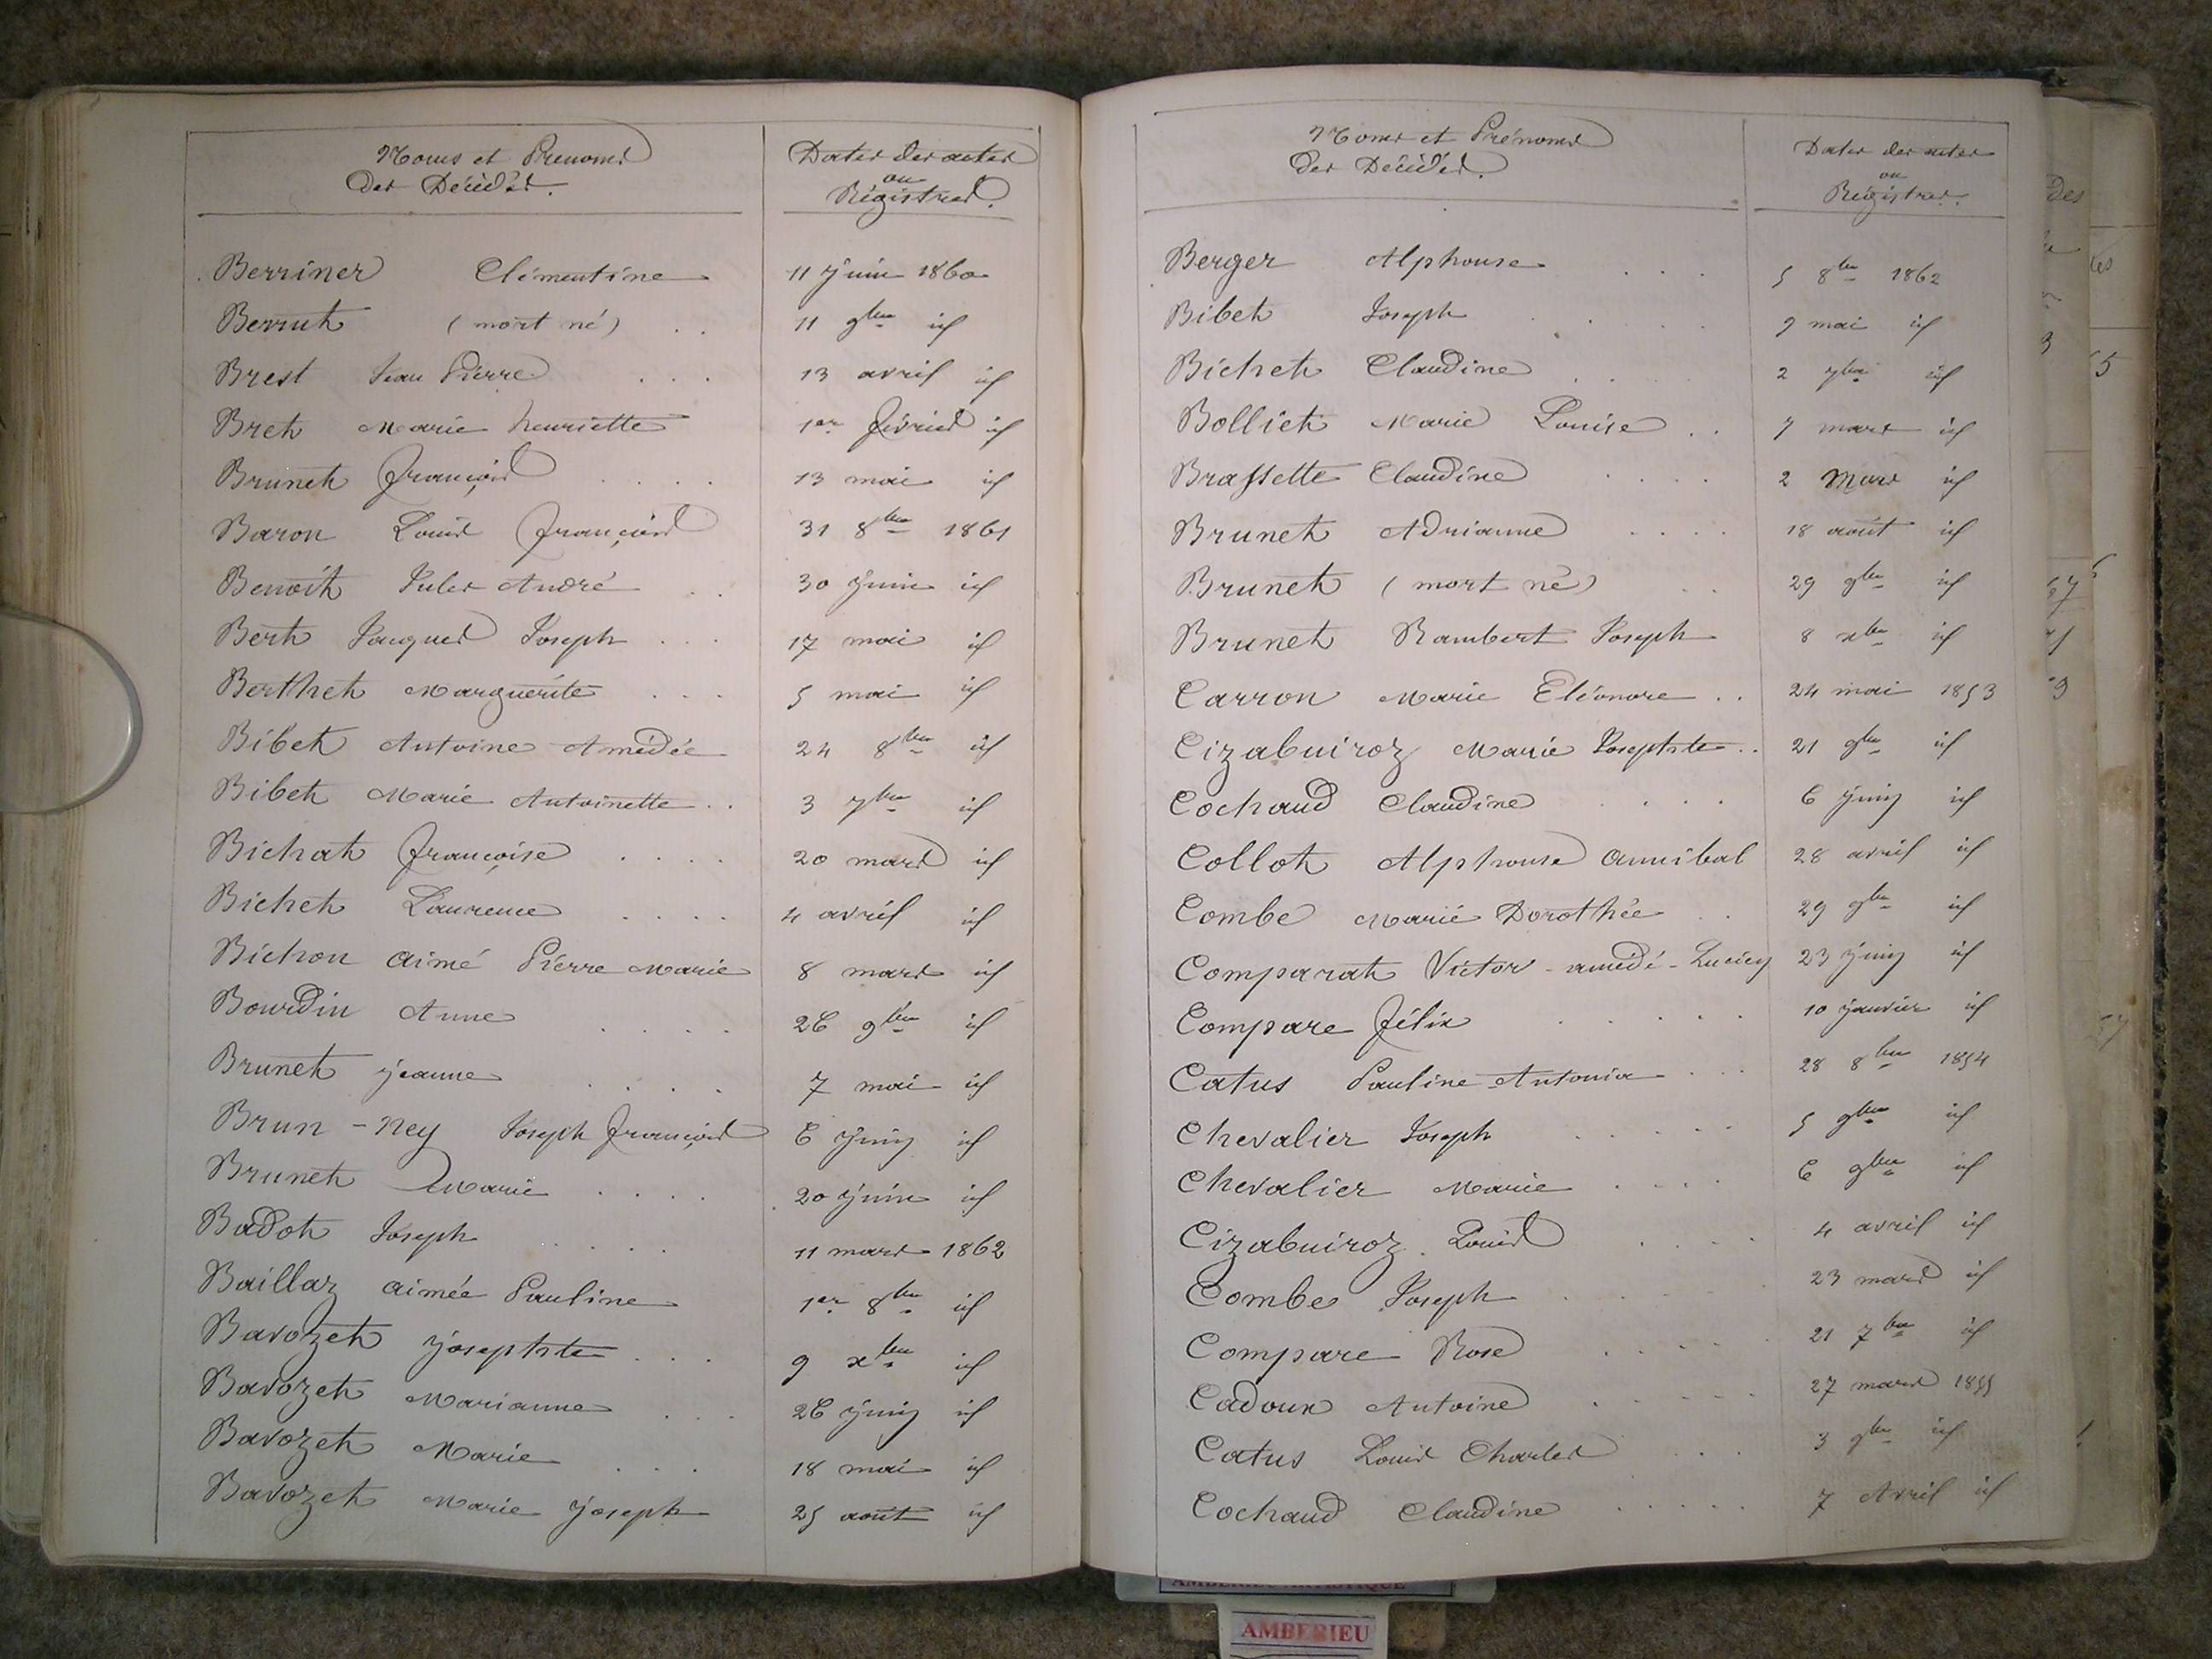 Noms et Prenoms
des Décédés.
Dates des actes
ou
Régistres.
Berriner Clémentine 11 juin 1860
Berrut (mort né) . . 11 9bre id
Brest Jean Pierre . . . 13 avril id
Bret Marie henriette 1er février id
Brunet françois . . . . 13 mai id
Baron Louis françois 31 8bre 1861
Benoit Jules André . . 30 juin id
Bert Jacques Joseph . . . 17 mai id
Berthet Marguérite . . . 5 mai id
Bibet Antoine Amédée 24 8bre id
Bibet Marie Antoinette . . 3 7bre id
Bichat françoise . . . . 20 mars id
Bichet Laurence . . . . 4 avril id
Bichon aimé Pierre Marie 8 mars id
Bourdin Anne . . . . 26 9bre id
Brunet jeanne . . . . 7 mai id
Brun - Ney Joseph françois 6 juin id
Brunet Marie . . . . 20 juin id
Badot Joseph . . . . 11 mars 1862
Baillaz aimée Pauline 1er 8bre id
Bavozet josephte . . . 9 xbre id
Bavozet Marianne . . . 26 juin id
Bavozet Marie . . . 18 mai id
Bavozet Marie joseph 25 août id
Noms et Prénoms
des Décédés.
Dates des actes
ou
Régistres.
Berger Alphonse . . . 5 8bre 1862
Bibet Joseph . . . . 9 mai id
Bichet Claudine . . . 2 7bre id
Volliet Marie Louise . . 7 mars id
Brassette Claudine . . . . 2 Mars id
Brunet Adrianne . . . . 18 août id
Brunet (mort né) . . 29 9bre id
Brunet Rambert Joseph 8 xbre id
Carron Marie Eléonore . . 24 mai 1853
Cizabuiroz Marie Josephte . . 21 9bre id
Cochaud Claudine . . . . 6 juin id
Collot Alphonse annibal 28 avril id
Combe Marie Dorothée . . 29 9bre id
Comparat Victor - amédé - Lucien 23 juin id
Compare félix . . . . . 10 janvier id
Catus Pauline Antonia . . . 28 8bre 1854
Chevalier Joseph . . . . . 5 9bre id
Chevalier Marie . . . . 6 9bre id
Cizabuiroz Louis . . . . 4 avril id
Combe Joseph . . . . 23 mars id
Compare Rose . . . . 21 7bre id
Cadoux Antoine . . . . 27 mars 1855
Catus Louis Charles . . 3 9bre id
Cochaud Claudine . . . . . 7 Avril id
AMBERIEU